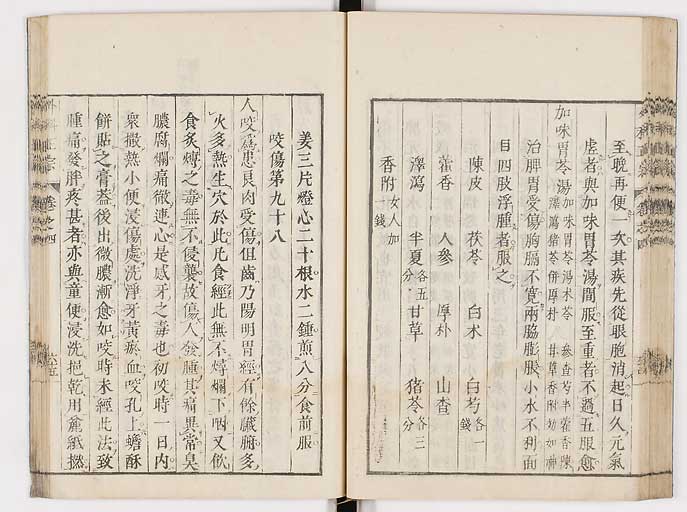 至晚再便一次其疾先從眼胞消起日久元氣
虛者與加味胃苓湯間服至重者不過五服愈
加味胃苓湯加味胃苓湯术苓 參查芍半藿香陳
澤瀉猪苓併厚朴 甘草香附功如神
治脾胃受傷胸膈不寬兩脇膨脹小水不利面
目四肢浮腫者服之
陳皮 茯苓 白术 白芍各一錢
藿香 人參 厚朴 山查
澤瀉 半夏各五分 甘草 猪苓各三分
香附女人加一錢
姜三片燈心二十根水二鍾煎八分食前服
咬傷第九十八
人咬爲患良肉受傷但齒乃陽明胃經有餘臟腑多
火多熱生穴於此凡食經此無不𤏋爛下咽又飲
食炙煿之毒無不侵襲故傷人發腫其痛異常臭
膿腐爛痛徹連心是感牙之毒也初咬時一日內
衆撒熱小便浸傷處洗淨牙黃瘀血咬孔上蟾酥
餅貼之膏蓋後出微膿漸愈如咬時未經此法致
腫痛發胖疼甚者亦與童便浸洗挹乾用麄紙撚
卷之四
六五